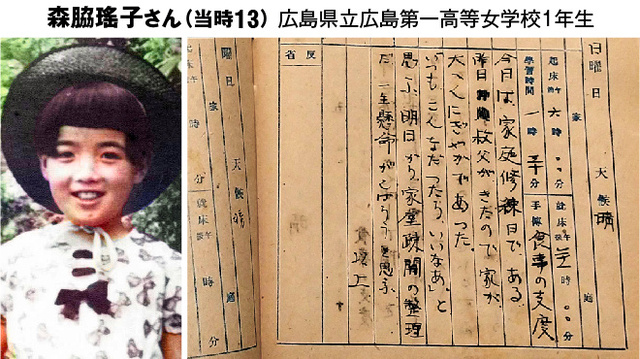 森脇瑤子さん（当時13）広島県立広島第一高等女学校1年生
日曜日 天候 晴
家庭
起床 午前 六時〇〇分 就床 午後
学習時間 一時三十分 手伝 食事の支度
今日は、家庭修練日である。
昨日 叔父がきたので、家が、
大へんにぎやかであった。
「いつもこんなだったら、いいなあ」と
思ふ。明日から、家屋疎開の整理
だ。一生懸命がんばらうと思ふ。
反省
曜日 天候 晴
家庭
時 分 就床 午後 時 分